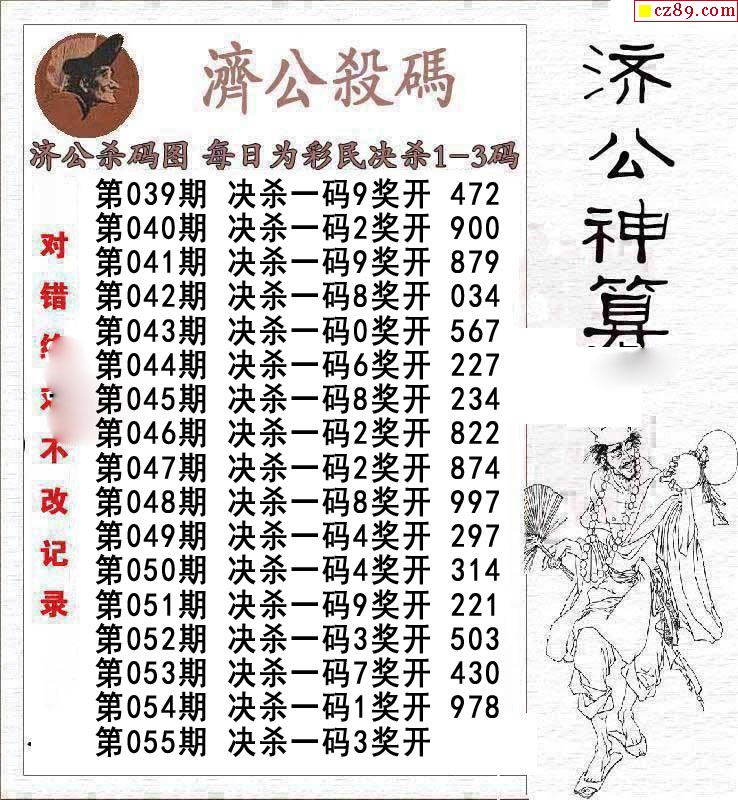 cz89.com
濟公殺碼
济公杀码图 每日为彩民决杀1-3码
第039期 决杀一码9奖开 472
第040期 决杀一码2奖开 900
第041期 决杀一码9奖开 879
第042期 决杀一码8奖开 034
第043期 决杀一码0奖开 567
第044期 决杀一码6奖开 227
第045期 决杀一码8奖开 234
第046期 决杀一码2奖开 822
第047期 决杀一码2奖开 874
第048期 决杀一码8奖开 997
第049期 决杀一码4奖开 297
第050期 决杀一码4奖开 314
第051期 决杀一码9奖开 221
第052期 决杀一码3奖开 503
第053期 决杀一码7奖开 430
第054期 决杀一码1奖开 978
第055期 决杀一码3奖开
对错 不改记录
济公神算